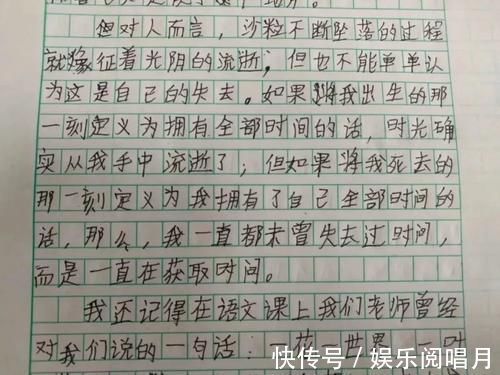 但对人而言，沙粒不断坠落的过程
就像征着光阴的流逝；但也不能单单认
为这是自己的失去。如果将我出生的那
一刻定义为拥有全部时间的话，时光确
实从我手中流逝了；但如果将我死去的
那一刻定义为我拥有了自己全部时间的
话，那么，我一直都未曾失去过时间，
而是一直在获取时间。
我还记得在语文课上我们老师曾经
对我们说的一句话：一花一世界，一叶
快传号/娱乐阅唱月